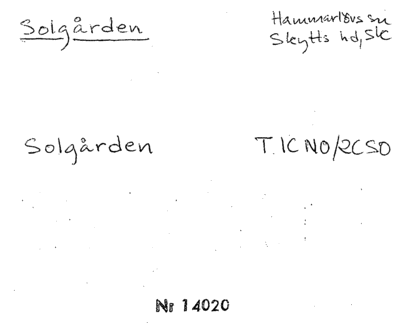 Solgården
Hammarlövs sn
Skytts hd, Sk
Solgården
T. IC NO/2C SO
Nr 14020